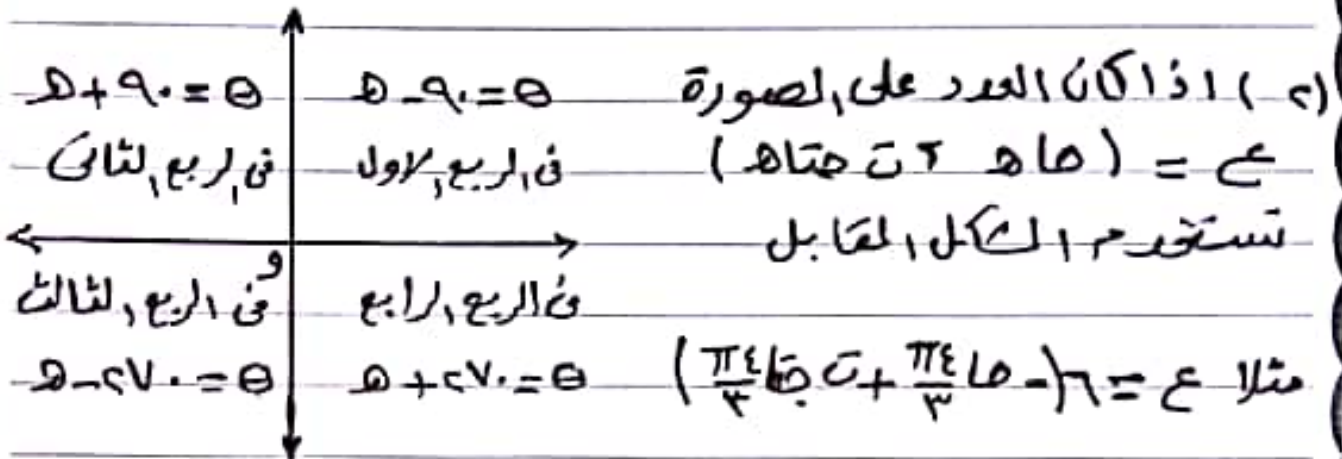 (٢) اذا كان العدد على الصورة
ع = (حا ه ± ت حتا ه)
تستخدم الشكل المقابل
مثلا ع = ٦(- حا ٤π/٣ + ت حتا ٤π/٣)
θ = ٩٠ - ه
فى الربع الاول
θ = ٩٠ + ه
فى الربع الثانى
و
فى الربع الثالث
θ = ٢٧٠ - ه
فى الربع الرابع
θ = ٢٧٠ + ه